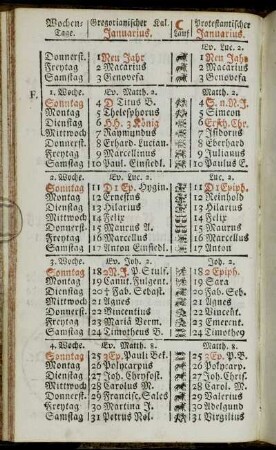 Wochen- Gregorianischer Kal. ☾ Protestantischer
Tage. Januarius. Lauf Januarius.
Ev. Luc. 2.
Donnerst. 1 Neu Jahr 1 Neu Jahr
Freytag 2 Macarius 2 Macarius
Samstag 3 Genovefa 3 Genovefa
F. 1. Woche. Ev. Matth. 2. Matth. 2.
Sonntag 4 D Titus B. 4 S. n. N. J.
Montag 5 Thelesphorus 5 Simeon
Dienstag 6 HH. 3 König 6 Ersch. Chr.
Mittwoch 7 Raymundus 7 Isidorus
Donnerst. 8 Erhard. Lucian. 8 Eberhard
Freytag 9 Marcellinus 9 Julianus
Samstag 10 Paul. Einsied. 10 Paulus E.
2. Woche. Ev. Luc. 2. Luc. 2.
Sonntag 11 D 1 Ep. Hygin. 11 D 1 Epiph.
Montag 12 Ernestus 12 Reinhold
Dienstag 13 Hilarius 13 Hilarius
Mittwoch 14 Felix 14 Felix
Donnerst. 15 Maurus A. 15 Maurus
Freytag 16 Marcellus 16 Marcellus
Samstag 17 Anton Einsiedl. 17 Anton
3. Woche. Ev. Joh. 2. Joh. 2.
Sonntag 18 2 N. J. P. Stulf. 18 2 Epiph.
Montag 19 Canut. Fulgent. 19 Sara
Dienstag 20 † Fab. Sebast. 20 Fab. Seb.
Mittwoch 21 Agnes 21 Agnes
Donnerst. 22 Vincentius 22 Vincent.
Freytag 23 Mariä Verm. 23 Emerent.
Samstag 24 Timotheus B. 24 Timothey
4. Woche. Ev. Matth. 8. Matth. 8.
Sonntag 25 3 Ep. Pauli Bek. 25 3 Ep. P. B.
Montag 26 Polycarpus 26 Polycarp.
Dienstag 27 Joh. Chrysost. 27 Joh. Chris.
Mittwoch 28 Carolus M. 28 Carol. M.
Donnerst. 29 Francisc. Sales 29 Valerius
Freytag 30 Martina J. 30 Adelgund
Samstag 31 Petrus Nol. 31 Virgilius